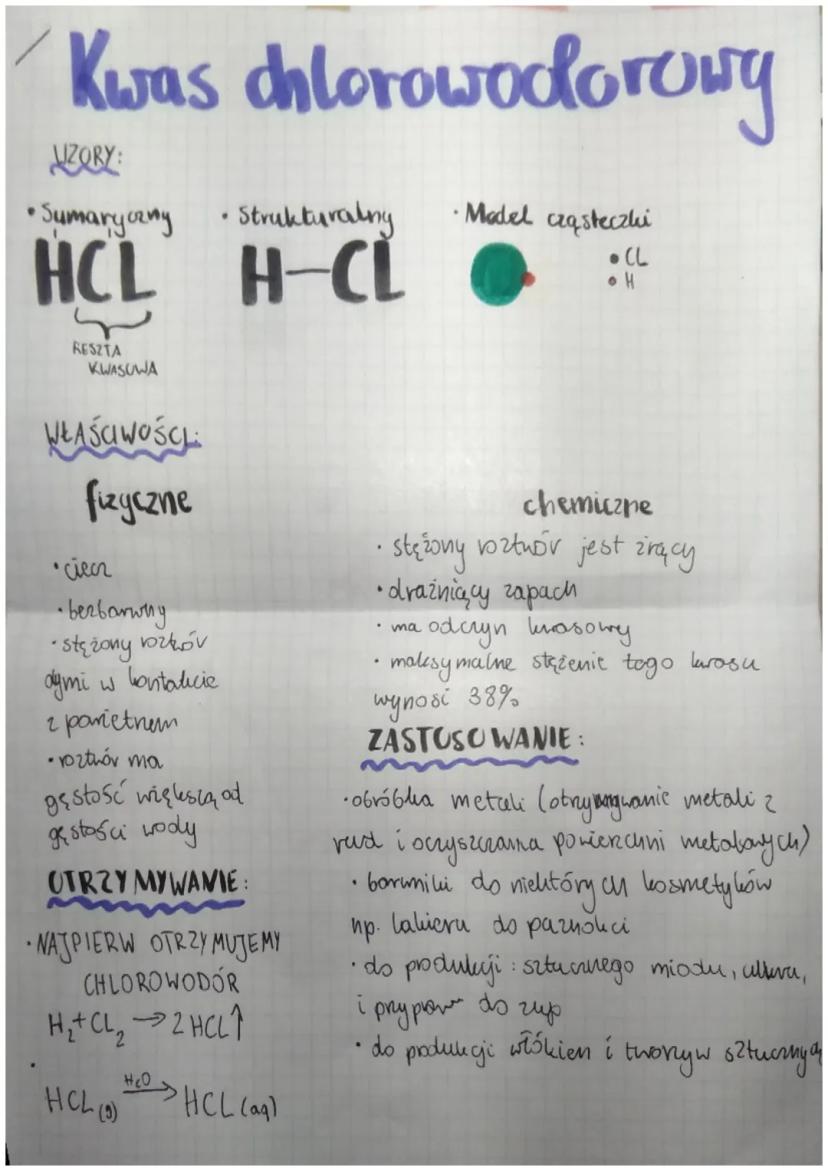 Kwas chlorowodorowy
WZORY:
• Sumaryczny
HCL
RESZTA
KWASOWA
• Strukturalny
H-CL
• Model cząsteczki
• CL
• H
WŁAŚCIWOŚCI:
fizyczne
• ciecz
• bezbarwny
• stężony roztwór
dymi w kontakcie
z powietrzem
• roztwór ma
gęstość większą od
gęstości wody
OTRZYMYWANIE:
• NAJPIERW OTRZYMUJEMY
CHLOROWODÓR
H₂+CL₂ → 2HCL↑
• HCL(g) H₂O→ HCL(aq)
chemiczne
• stężony roztwór jest żrący
• drażniący zapach
• ma odczyn kwasowy
• maksymalne stężenie tego kwasu
wynosi 38%
ZASTOSOWANIE:
• obróbka metali (otrzymywanie metali z
rud i oczyszczania powierzchni metalowych)
• barwniki do niektórych kosmetyków
np. lakieru do paznokci
• do produkcji: sztucznego miodu, cukru,
i przypraw do zup
• do produkcji włókien i tworzyw sztucznych